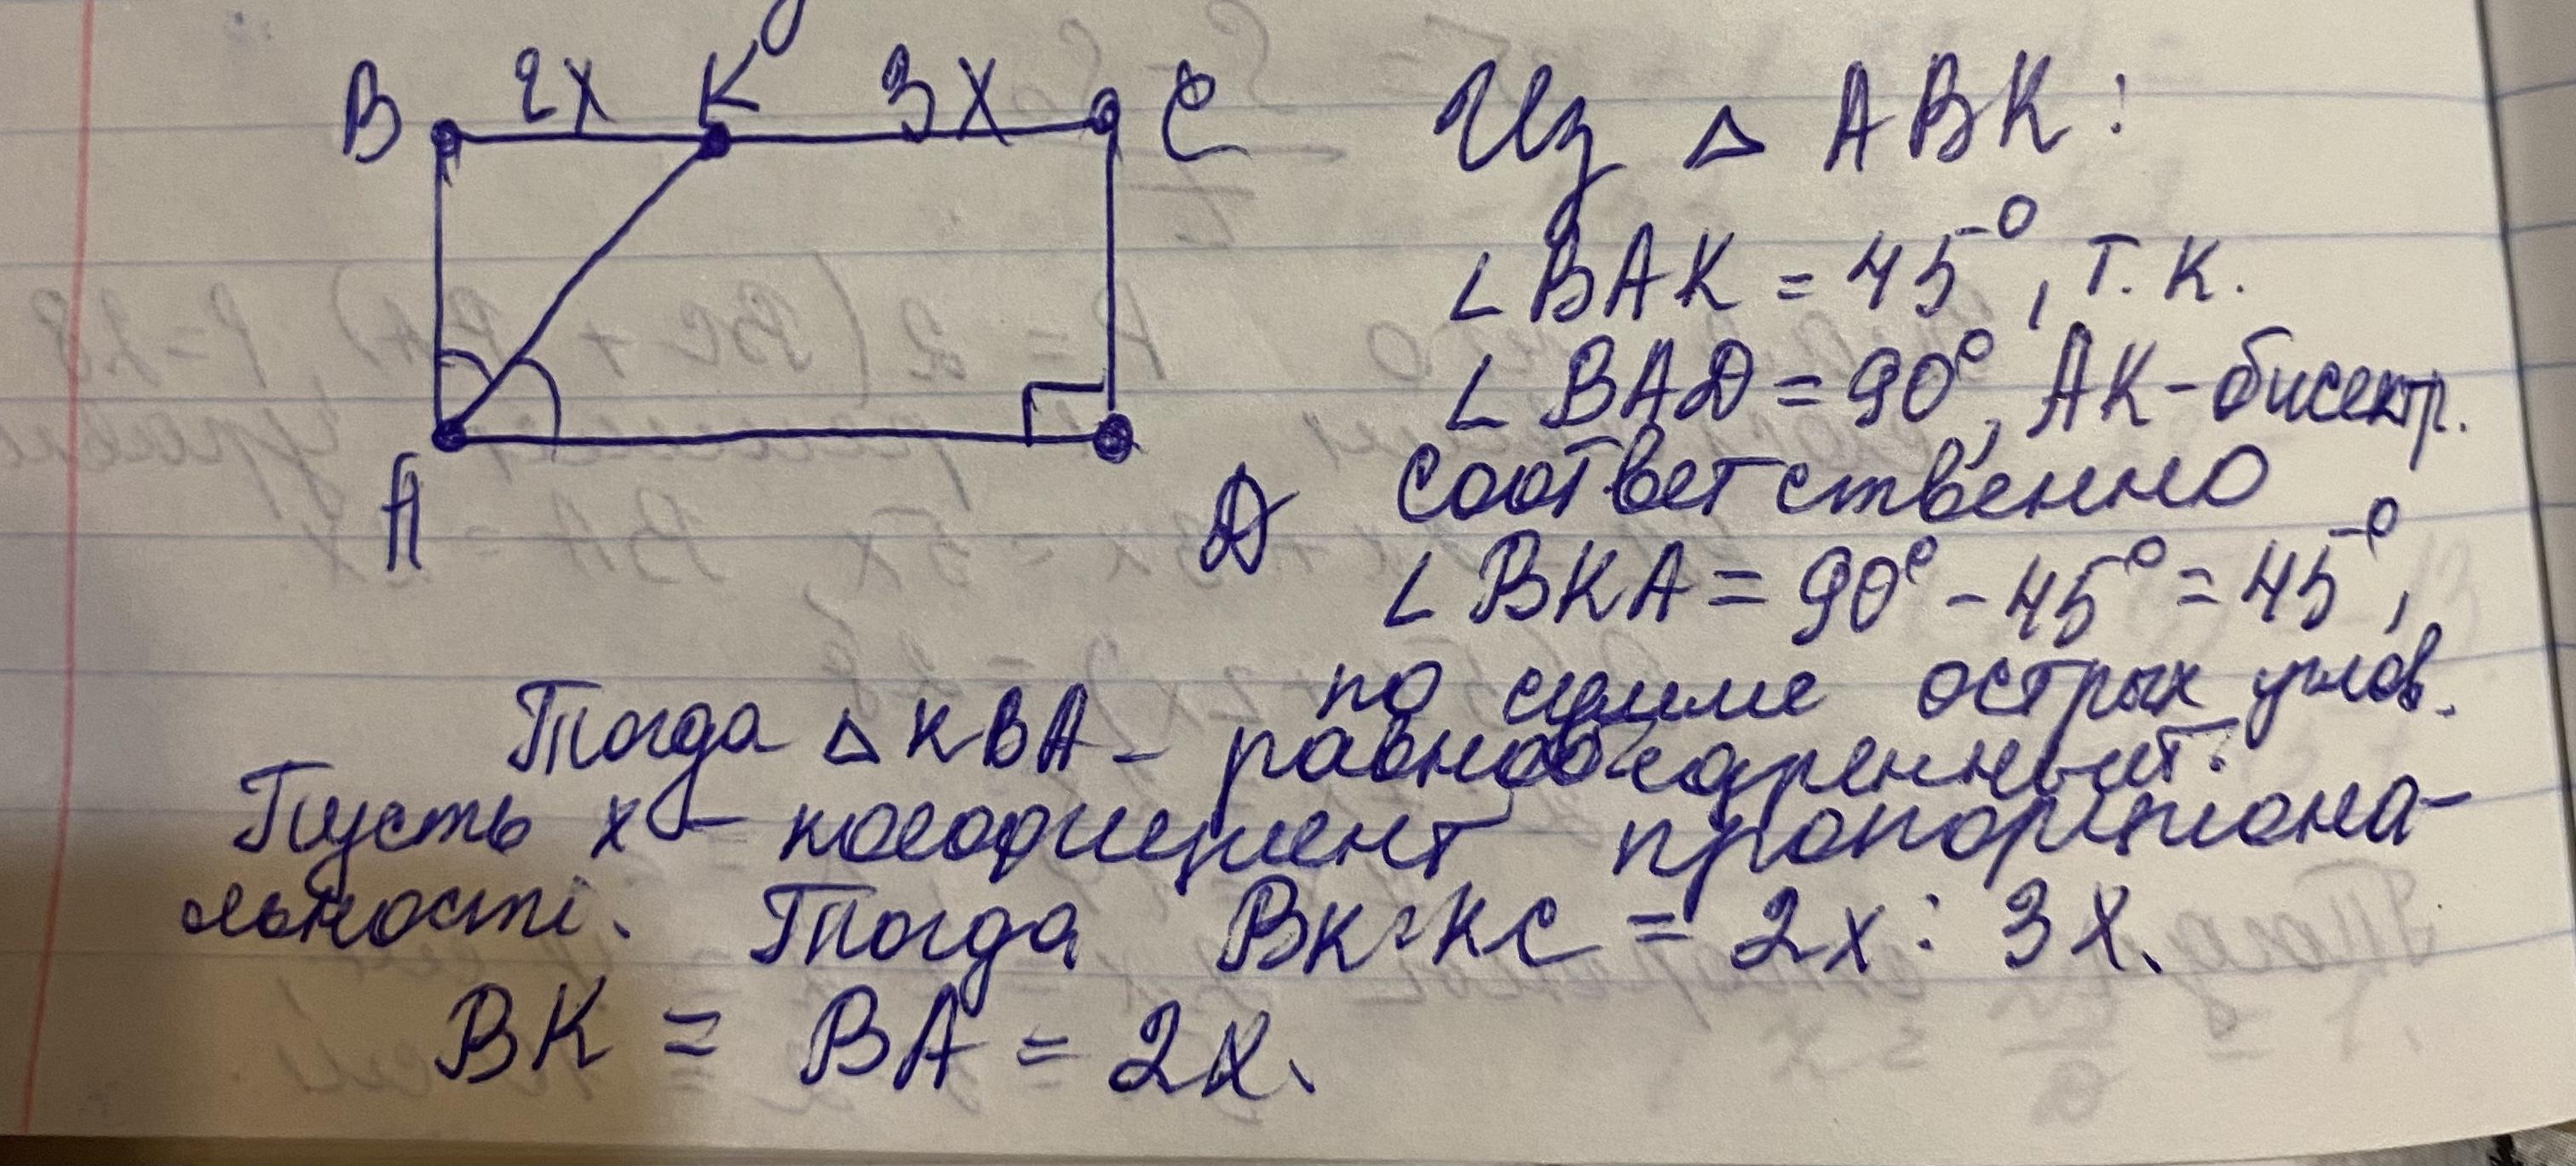 B 2x K 3x C
A D
Из △ ABK:
∠BAK = 45°, т.к.
∠BAD = 90°, AK - бисектр.
соответственно
∠BKA = 90° - 45° = 45°,
по сумме острых углов.
Тогда △KBA - равнобедренный.
Пусть x - коэффициент пропорциона-
льності. Тогда BK:KC = 2x : 3x.
BK = BA = 2x.